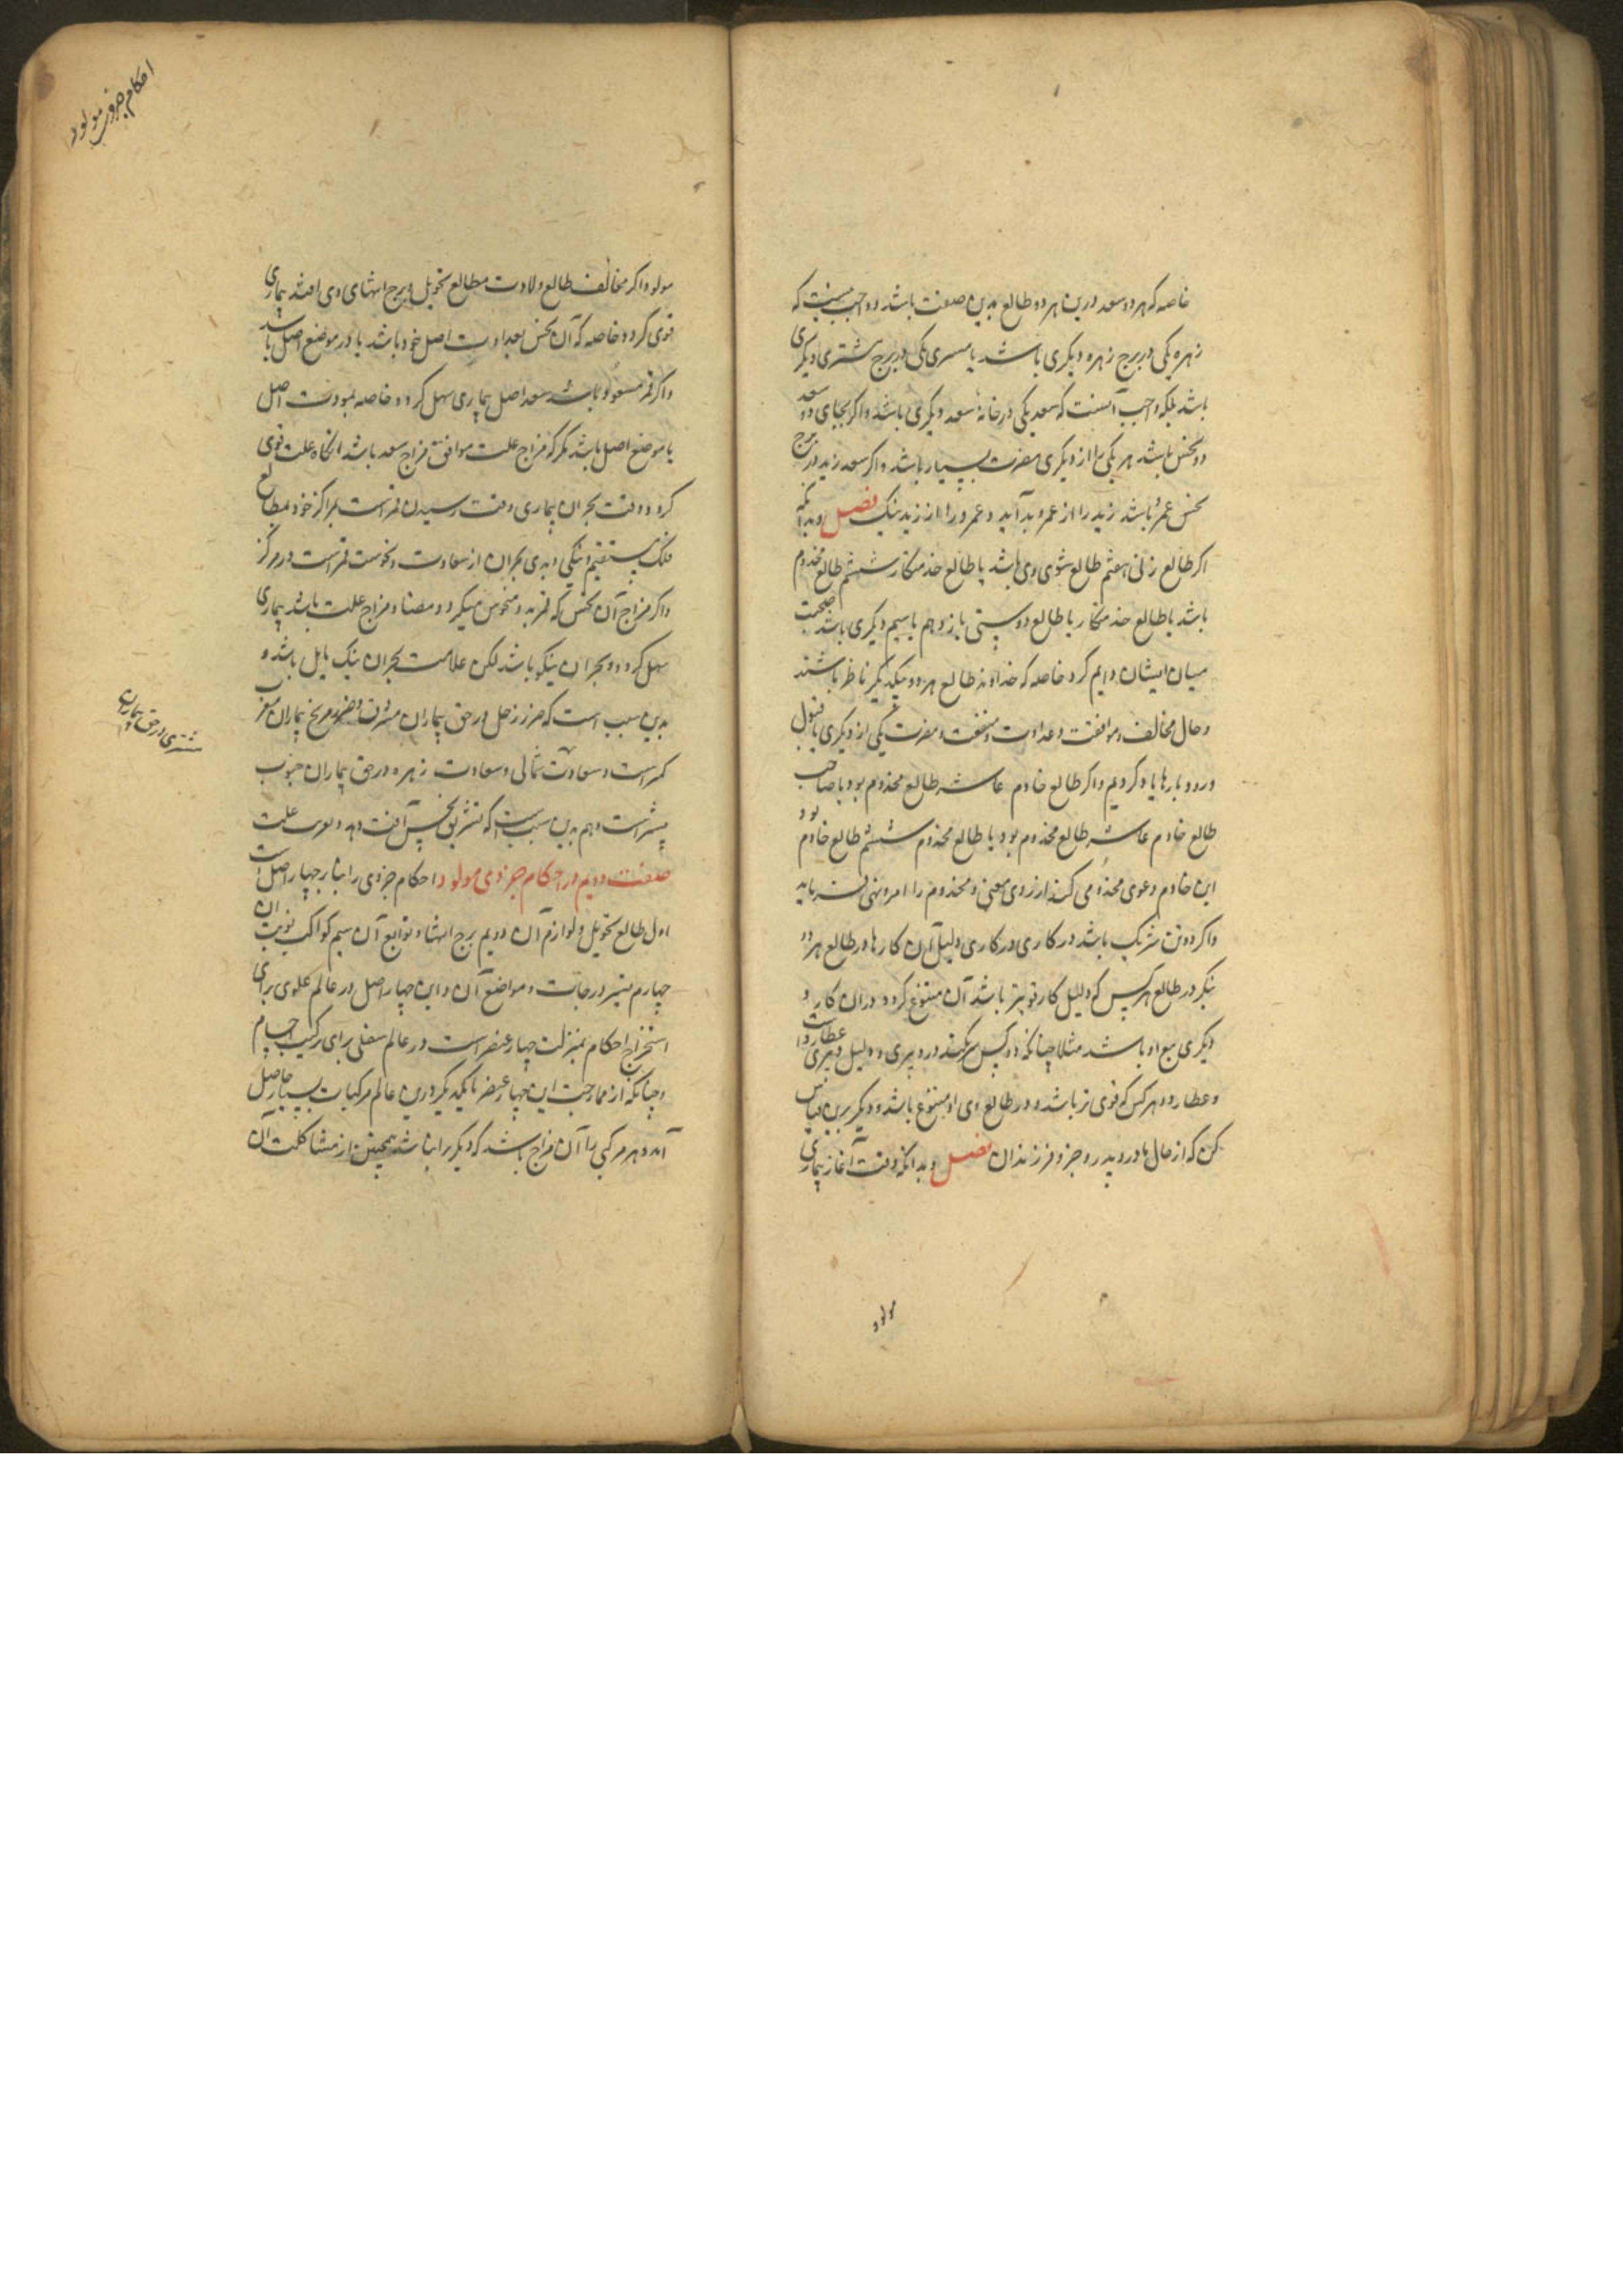 خاصه که هر دو سعد درین هر دو طالع بدین صفت باشد و واجب نیست که
زهره یکی در برج زهره دیگری باشد یا مشتری یکی در برج مشتری دیگری
باشد بلکه واجب آنست که سعد یکی در خانهٔ سعد دیگری باشد و اگر بجای دو سعد
دو نحس باشد هر یکی را از دیگری مضرت بسیار باشد و اگر سعد زید در برج
نحس عمرو باشد زید را از عمرو بد آید و عمرو را از زید نیک فصل و بدانکه
اگر طالع زنی هفتم طالع شوی وی باشد یا طالع خدمتکار ششم طالع مخدوم
باشد یا طالع خدمتکار یا طالع دوستی یازدهم یا سیم دیگری باشد صحبت
میان ایشان دایم گردد خاصه که خداوند طالع هر دو بیکدیگر ناظر باشند
و حال مخالفت و موافقت و عداوت و منفعت و مضرت یکی از دیگری با قبول
و رد بارها یاد کردیم و اگر طالع خادم عاشر طالع مخدوم بود یا صاحب
طالع خادم عاشر طالع مخدوم بود یا طالع مخدوم ششم طالع خادم بود
این خادم دعوی مخدومی کند از روی معنی و مخدوم را امر و نهی فرماید
و اگر دو تن شریک باشد در کاری در کاری دلیل آن کارها در طالع هر دو
بنگر در طالع هر کس که دلیل کار قویتر باشد آن متبوع گردد در آن کار و
دیگری تبع او باشد مثلا چنانکه دو کس شرکت کنند در دبیری و دلیل دبیری عطارد است
و عطارد هر کس که قوی تر باشد در طالع وی او متبوع باشد و دیگر برین قیاس
کن که از حال مادر و پدر و جز و فرزندان فصل و بدانکه وقت آغاز بیماری
مولود
احکام جزوی مولود
مولود اگر مخالف طالع ولادت و طالع تحویل و برج انتهای وی افتد بیماری
قوی گردد خاصه که آن نحس بعداوت اصل خود باشد یا در موضع اصل باشد
و اگر قمر مسعود باشد بسعد اصل بیماری سهل گردد خاصه بمودت اصل
یا موضع اصل باشد مگر که مزاج علت موافق مزاج سعد باشد انگاه علت قوی
گردد و وقت بحران بیماری وقت رسیدن قمر است بمراکز خود بمطالع
فلک مستقیم و نیکی و بدی بحران از سعادت و نحوست قمر است در مرکز
و اگر مزاج آن نحس که قمر بدو منحوس میگردد مضاد مزاج علت باشد بیماری
سهل گردد و بحران نیکو باشد لکن علامت بحران نیک یابل باشد و
بدین سبب است که ضرر زحل در حق بیماران مشرق و ضرر مریخ بیماران مغرب
کمتر است و سعادت شمالی و سعادت زهره در حق بیماران جنوب
مشتری در حق بیماران
بیشتر است و هم بدین سبب است که تشریق نحس آفت دهد و علت
صفت دویم در احکام جزوی مولود احکام جزوی را بنا بر چهار اصل است
اول طالع تحویل و لوازم آن دویم برج انتها و توابع آن سیم کواکب نوبت آن
چهارم تسییر درجات و مواضع آن و این چهار اصل در عالم علوی برای
استخراج احکام بمنزلت چهار عنصر است در عالم سفلی برای ترکیب اجسام
و چنانکه از ممازجت این چهار عنصر با یکدیگر درین عالم مرکبات بسیار حاصل
آمد و هر مرکبی را آن مزاج باشد که دیگر را نباشد همچنین از مشاکلت آن